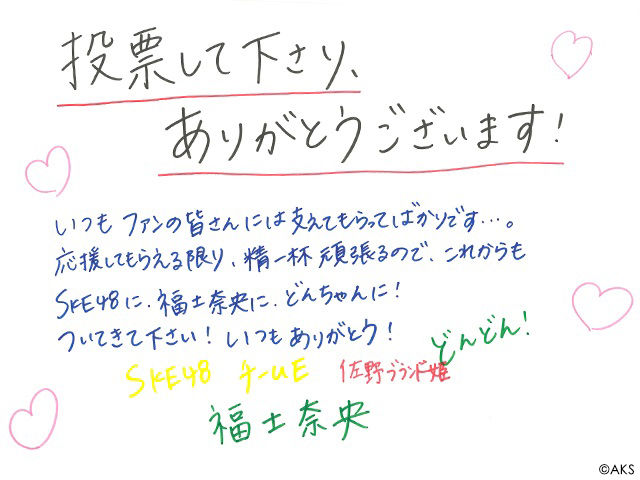 投票して下さり、
ありがとうございます!
いつも ファンの皆さんには支えてもらってばかりです…。
応援してもらえる限り、精一杯 頑張るので、これからも
SKE48に、福士奈央に、どんちゃんに!
ついてきて下さい! いつも ありがとう!
どんどん!
SKE48 チームE 佐野ブランド姫
福士奈央
©AKS